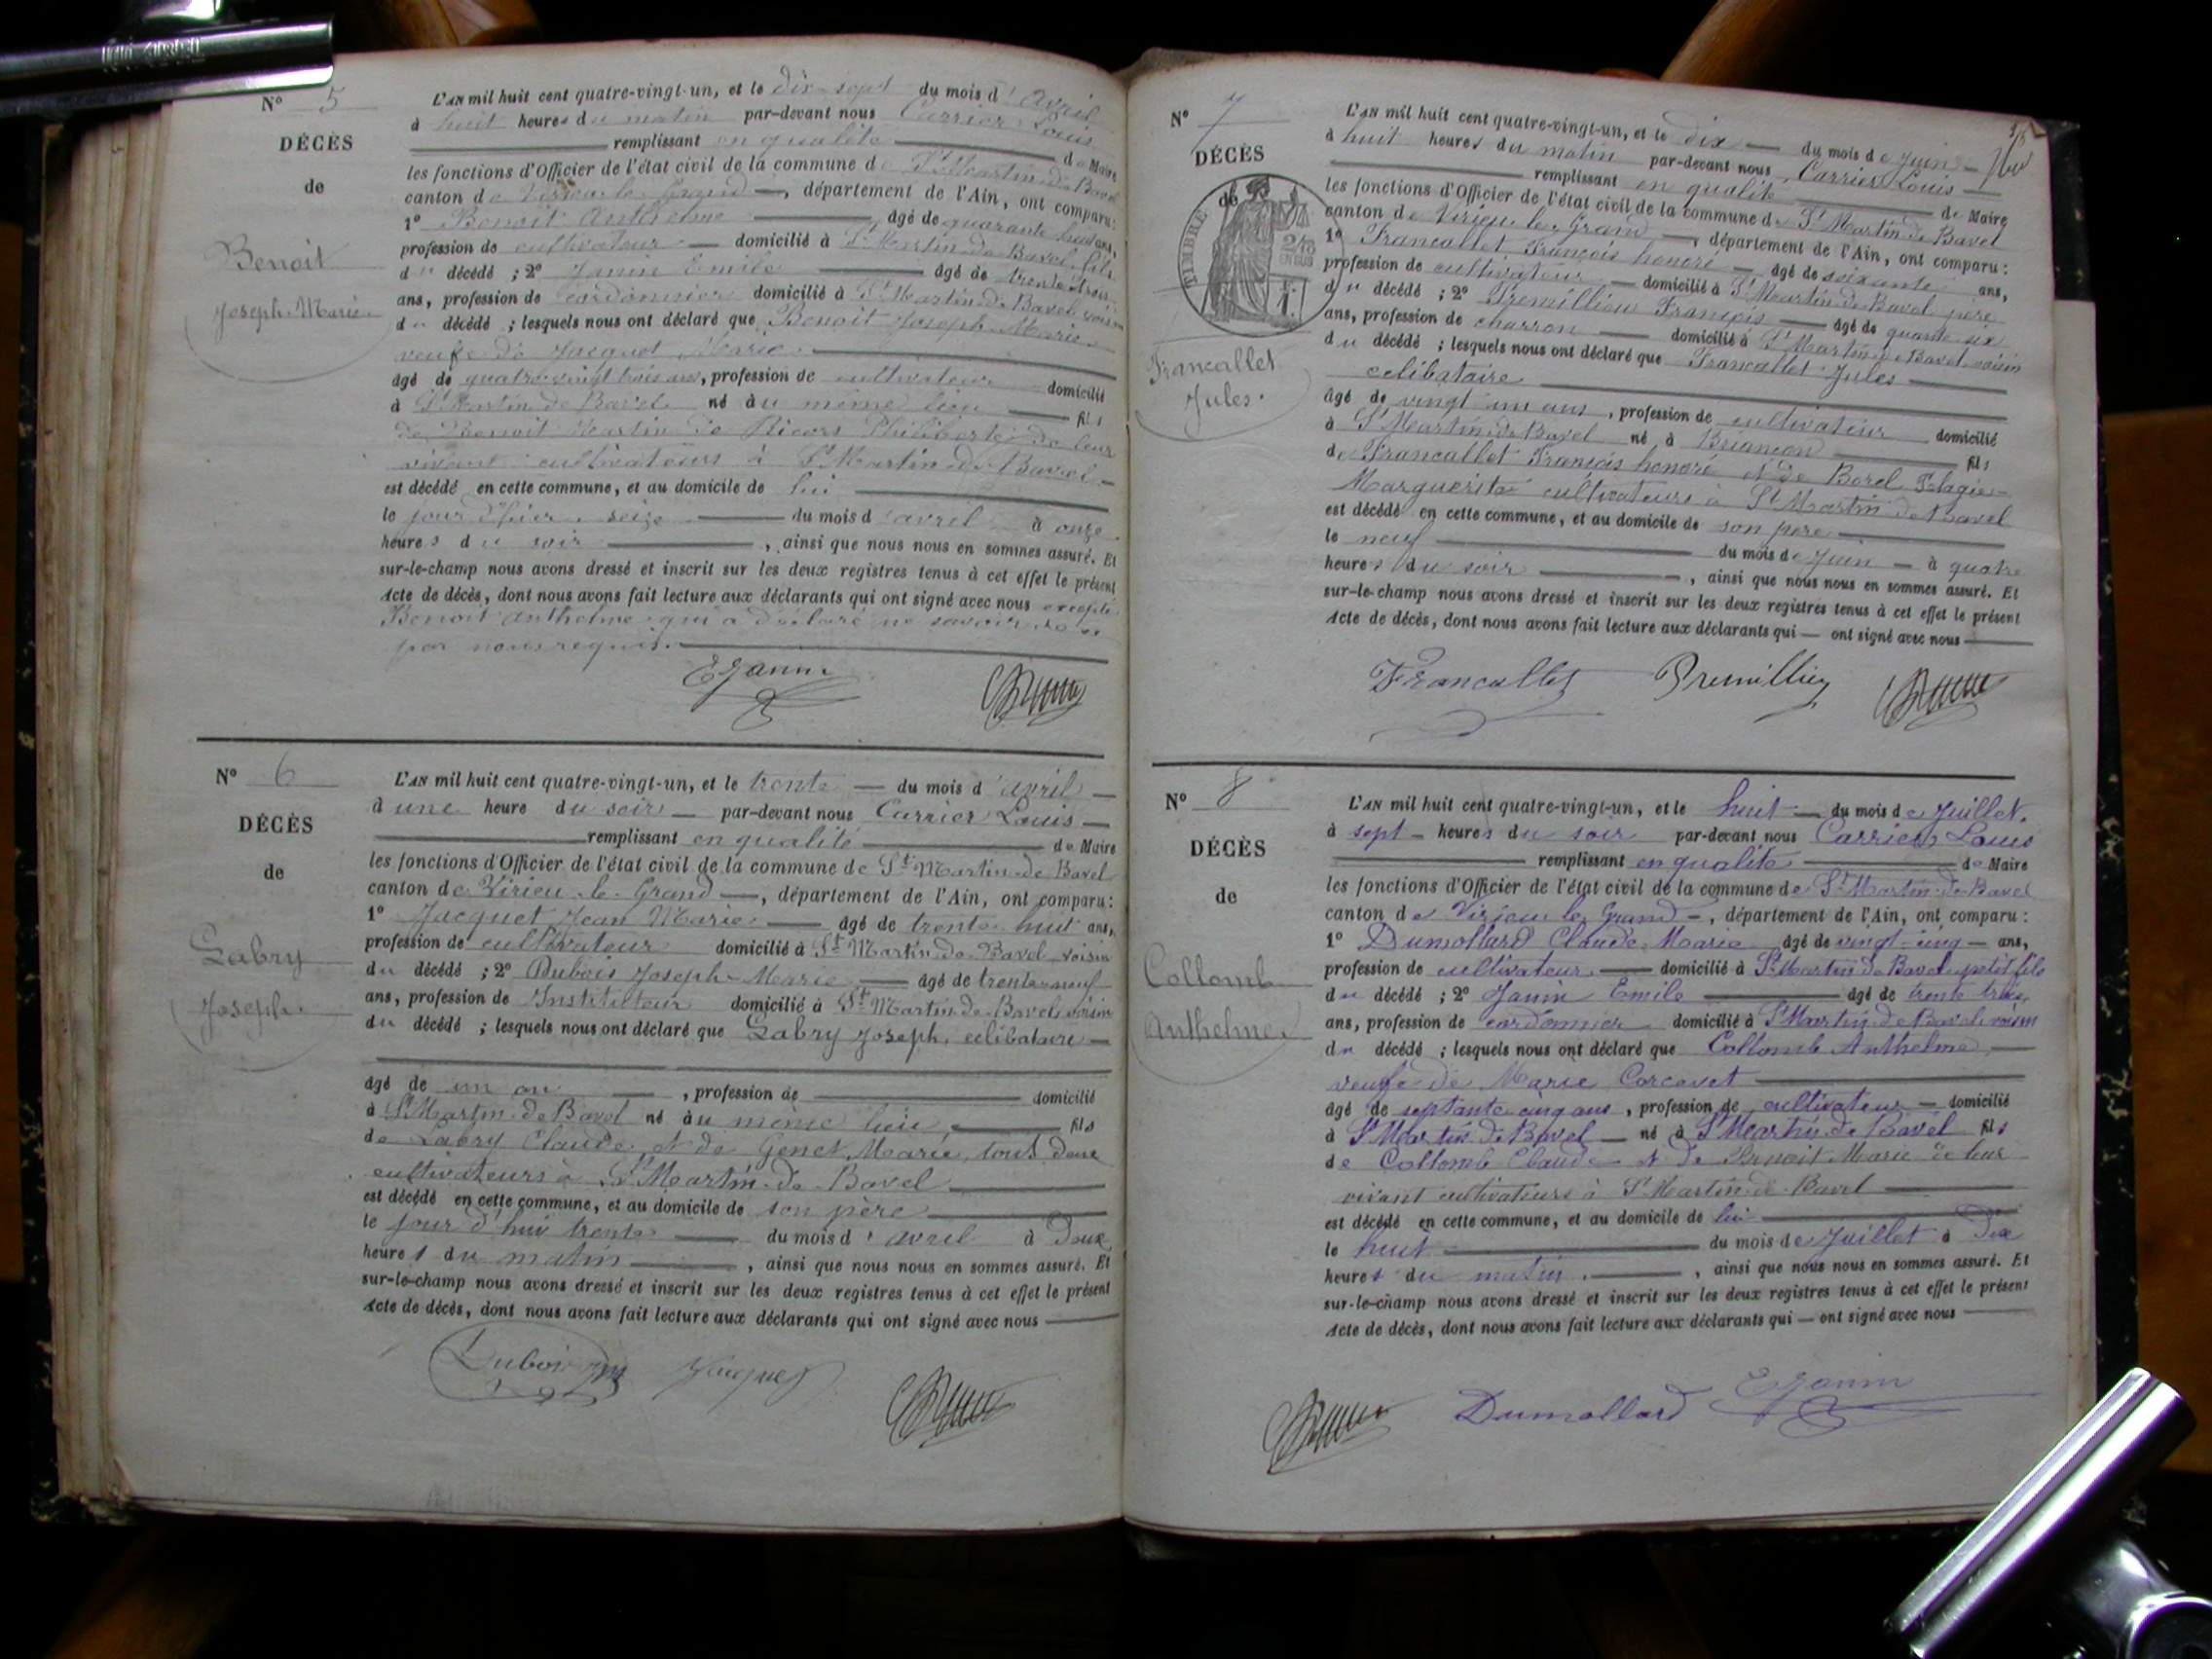 N° 5
DÉCÈS
de
Benoit
Joseph-Marie
L'AN mil huit cent quatre-vingt-un, et le dix-sept du mois d'avril
à huit heures du matin par-devant nous Carrier Louis
remplissant en qualité de Maire
les fonctions d'Officier de l'état civil de la commune de St Martin-de-Bavel
canton de Virieu-le-Grand, département de l'Ain, ont comparu:
1° Benoit Anthelme âgé de quarante huit ans,
profession de cultivateur domicilié à St Martin de Bavel fils
du décédé ; 2° Janin Emile âgé de trente trois
ans, profession de cordonnier domicilié à St Martin de Bavel voisin
du décédé ; lesquels nous ont déclaré que Benoit Joseph-Marie
veuf de Jacquet Marie
âgé de quatre-vingt trois ans, profession de cultivateur domicilié
à St Martin de Bavel né au même lieu fils
de Benoit Martin de Philiberte de leur
vivant cultivateurs à St Martin-de-Bavel
est décédé en cette commune, et au domicile de lui
le jour d'hier seize du mois d'avril à onze
heures du soir, ainsi que nous nous en sommes assuré. Et
sur-le-champ nous avons dressé et inscrit sur les deux registres tenus à cet effet le présent
Acte de décès, dont nous avons fait lecture aux déclarants qui ont signé avec nous excepté
Benoit Anthelme qui a déclaré ne savoir de ce
par nous requis.
E Janin
N° 6
DÉCÈS
de
Labry
Joseph
L'AN mil huit cent quatre-vingt-un, et le trente du mois d'avril
à une heure du soir par-devant nous Carrier Louis
remplissant en qualité de Maire
les fonctions d'Officier de l'état civil de la commune de St Martin-de-Bavel
canton de Virieu-le-Grand, département de l'Ain, ont comparu:
1° Jacquet Jean Marie âgé de trente huit ans,
profession de cultivateur domicilié à St Martin-de-Bavel voisin
du décédé ; 2° Dubois Joseph-Marie âgé de trente-neuf
ans, profession de Instituteur domicilié à St Martin-de-Bavel voisin
du décédé ; lesquels nous ont déclaré que Labry Joseph, célibataire
âgé de un an, profession de domicilié
à St Martin-de-Bavel né au même lieu fils
de Labry Claude et de Genet Marie, tous deux
cultivateurs à St Martin-de-Bavel
est décédé en cette commune, et au domicile de son père
le jour d'hui trente du mois d'avril à deux
heures du matin, ainsi que nous nous en sommes assuré. Et
sur-le-champ nous avons dressé et inscrit sur les deux registres tenus à cet effet le présent
Acte de décès, dont nous avons fait lecture aux déclarants qui ont signé avec nous
Dubois Jacquet
N° 7
DÉCÈS
de
TIMBRE
Francallet
Jules
L'AN mil huit cent quatre-vingt-un, et le dix du mois de Juin
à huit heures du matin par-devant nous Carrier Louis
remplissant en qualité de Maire
les fonctions d'Officier de l'état civil de la commune de St Martin de Bavel
canton de Virieu le Grand, département de l'Ain, ont comparu:
1° Francallet François honoré âgé de soixante ans,
profession de cultivateur domicilié à St Martin de Bavel père
du décédé ; 2° Premillieu François âgé de quarante six
ans, profession de charron domicilié à St Martin de Bavel voisin
du décédé ; lesquels nous ont déclaré que Francallet Jules
célibataire
âgé de vingt un ans, profession de cultivateur domicilié
à St Martin de Bavel né à Briançon fils
de Francallet François honoré et de Borel Pélagie
Marguerite cultivateurs à St Martin de Bavel
est décédé en cette commune, et au domicile de son père
le neuf du mois de Juin à quatre
heures du soir, ainsi que nous nous en sommes assuré. Et
sur-le-champ nous avons dressé et inscrit sur les deux registres tenus à cet effet le présent
Acte de décès, dont nous avons fait lecture aux déclarants qui — ont signé avec nous
Francallet Premillieu
N° 8
DÉCÈS
de
Collomb
Anthelme
L'AN mil huit cent quatre-vingt-un, et le huit du mois de Juillet
à sept heures du soir par-devant nous Carrier Louis
remplissant en qualité de Maire
les fonctions d'Officier de l'état civil de la commune de St Martin-de-Bavel
canton de Virieu le Grand, département de l'Ain, ont comparu:
1° Dumollard Claude Marie âgé de vingt-cinq ans,
profession de cultivateur domicilié à St Martin de Bavel petit fils
du décédé ; 2° Janin Emile âgé de trente trois
ans, profession de cordonnier domicilié à St Martin de Bavel voisin
du décédé ; lesquels nous ont déclaré que Collomb Anthelme
veuf de Marie Corcevet
âgé de septante-cinq ans, profession de cultivateur domicilié
à St Martin de Bavel né à St Martin de Bavel fils
de Collomb Claude et de Benoit Marie de leur
vivant cultivateurs à St Martin de Bavel
est décédé en cette commune, et au domicile de lui
le huit du mois de Juillet à dix
heures du matin, ainsi que nous nous en sommes assuré. Et
sur-le-champ nous avons dressé et inscrit sur les deux registres tenus à cet effet le présent
Acte de décès, dont nous avons fait lecture aux déclarants qui — ont signé avec nous
Dumollard E Janin